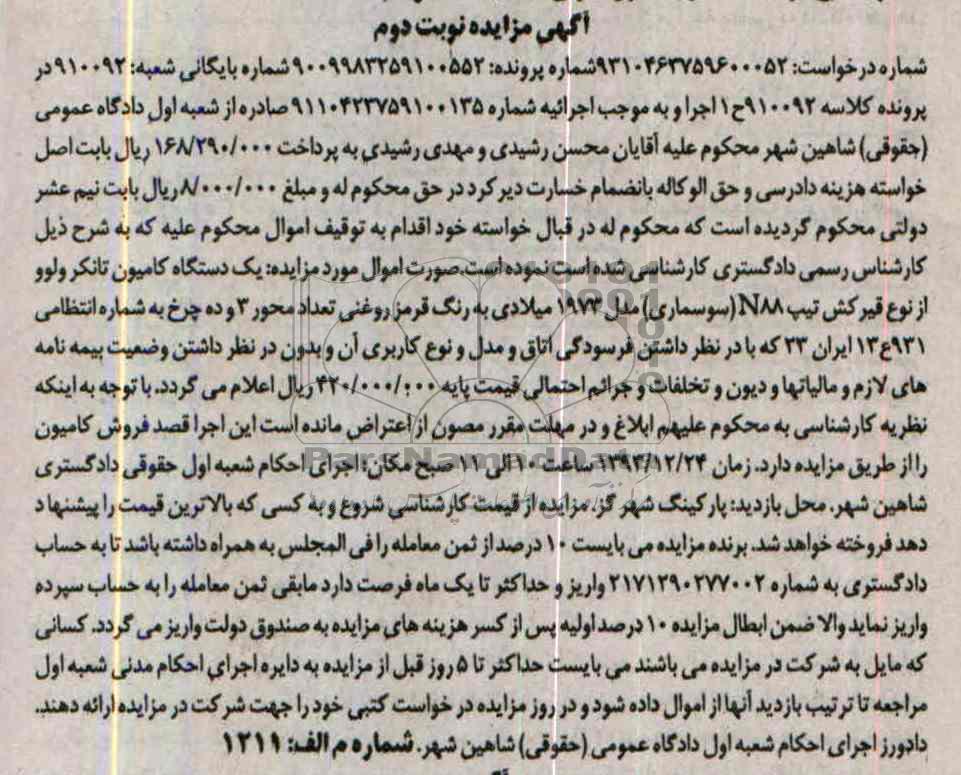 آگهی مزایده نوبت دوم
شماره درخواست: ۹۳۱۰۴۶۳۷۵۹۶۰۰۰۵۲شماره پرونده: ۹۰۰۹۹۸۳۲۵۹۱۰۰۵۵۲ شماره بایگانی شعبه: ۹۱۰۰۹۲ در
پرونده کلاسه ۹۱۰۰۹۲ح۱ اجرا و به موجب اجرائیه شماره ۹۱۱۰۴۲۳۷۵۹۱۰۰۱۳۵ صادره از شعبه اول دادگاه عمومی
(حقوقی) شاهین شهر محکوم علیه آقایان محسن رشیدی و مهدی رشیدی به پرداخت ۱۶۸/۲۹۰/۰۰۰ ریال بابت اصل
خواسته هزینه دادرسی و حق الوکاله بانضمام خسارت دیرکرد در حق محکوم له و مبلغ ۸/۰۰۰/۰۰۰ریال بابت نیم عشر
دولتی محکوم گردیده است که محکوم له در قبال خواسته خود اقدام به توقیف اموال محکوم علیه که به شرح ذیل
کارشناس رسمی دادگستری کارشناسی شده است نموده است.صورت اموال مورد مزایده: یک دستگاه کامیون تانکر ولوو
از نوع قیرکش تیپ N۸۸ (سوسماری) مدل ۱۹۷۳ میلادی به رنگ قرمز روغنی تعداد محور ۳ و ده چرخ به شماره انتظامی
۹۳۱ع۱۳ ایران ۲۳ که با در نظر داشتن فرسودگی اتاق و مدل و نوع کاربری آن و بدون در نظر داشتن وضعیت بیمه نامه
های لازم و مالیاتها و دیون و تخلفات و جرائم احتمالی قیمت پایه ۴۲۰/۰۰۰/۰۰۰ ریال اعلام می گردد. با توجه به اینکه
نظریه کارشناسی به محکوم علیهم ابلاغ و در مهلت مقرر مصون از اعتراض مانده است این اجرا قصد فروش کامیون
را از طریق مزایده دارد. زمان ۱۳۹۳/۱۲/۲۴ ساعت ۱۰ الی ۱۱ صبح مکان: اجرای احکام شعبه اول حقوقی دادگستری
شاهین شهر. محل بازدید: پارکینگ شهر گز. مزایده از قیمت کارشناسی شروع و به کسی که بالاترین قیمت را پیشنهاد
دهد فروخته خواهد شد. برنده مزایده می بایست ۱۰ درصد از ثمن معامله را فی المجلس به همراه داشته باشد تا به حساب
دادگستری به شماره ۲۱۷۱۲۹۰۲۷۷۰۰۲ واریز و حداکثر تا یک ماه فرصت دارد مابقی ثمن معامله را به حساب سپرده
واریز نماید والا ضمن ابطال مزایده ۱۰ درصد اولیه پس از کسر هزینه های مزایده به صندوق دولت واریز می گردد. کسانی
که مایل به شرکت در مزایده می باشند می بایست حداکثر تا ۵ روز قبل از مزایده به دایره اجرای احکام مدنی شعبه اول
مراجعه تا ترتیب بازدید آنها از اموال داده شود و در روز مزایده درخواست کتبی خود را جهت شرکت در مزایده ارائه دهند.
دادورز اجرای احکام شعبه اول دادگاه عمومی (حقوقی) شاهین شهر. شماره م الف: ۱۲۱۱